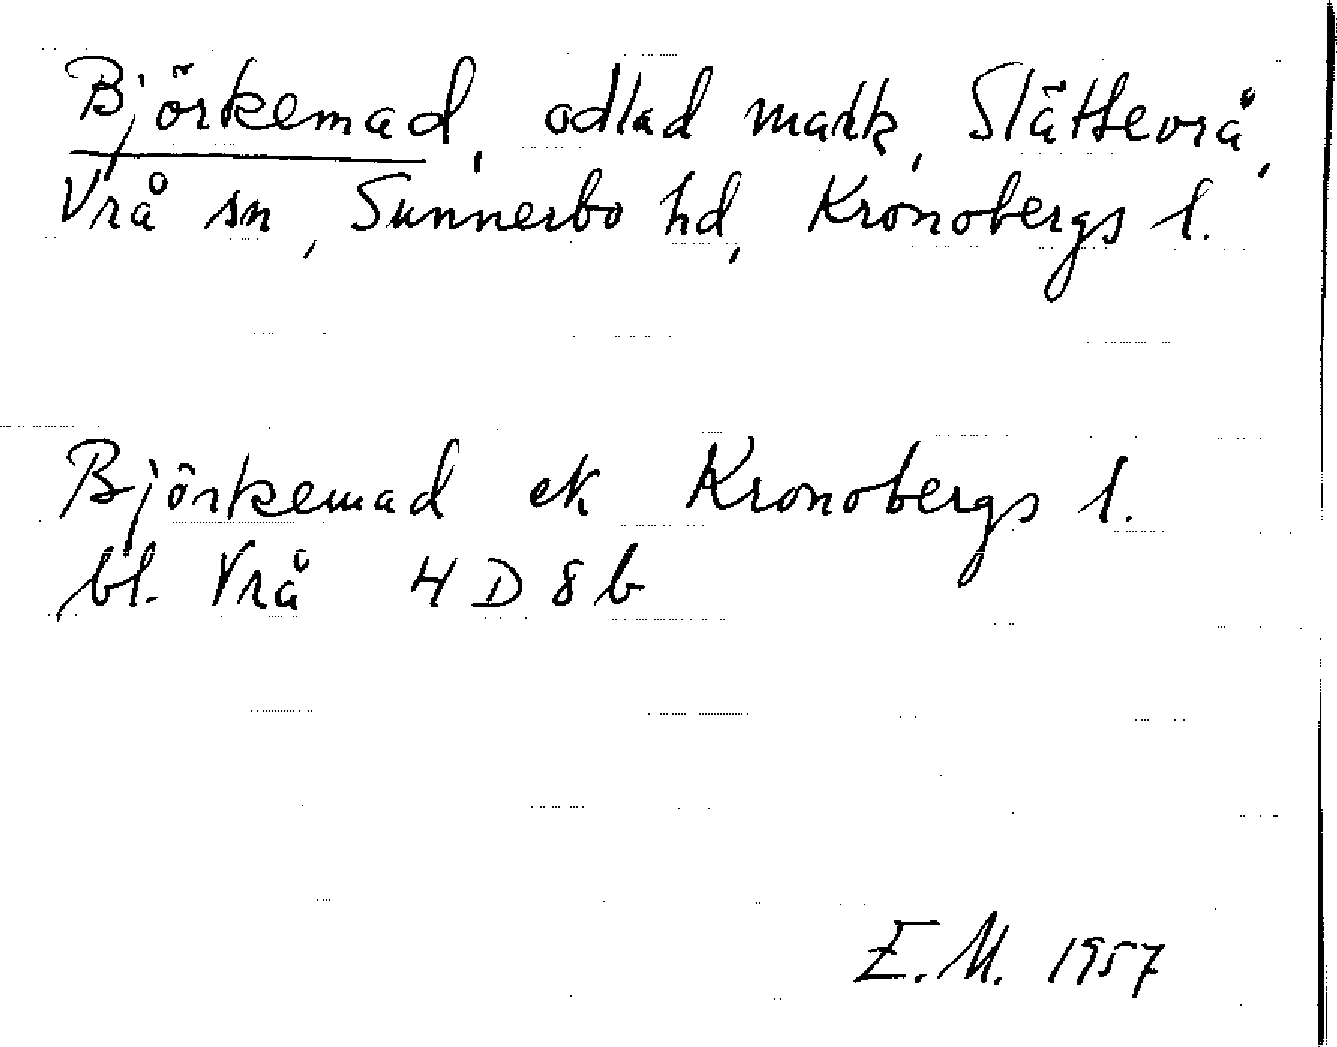 Björkemad, odlad mark, Slättevrå,
Vrå sn, Sunnerbo hd, Kronobergs l.
Björkemad ek Kronobergs l.
bl. Vrå 4 D 8 b
E.M. 1957